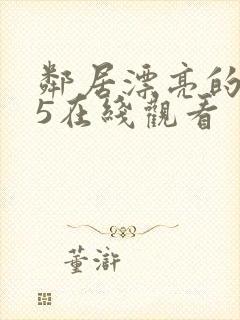 鄰居漂亮的
5在綫觀看
董滸